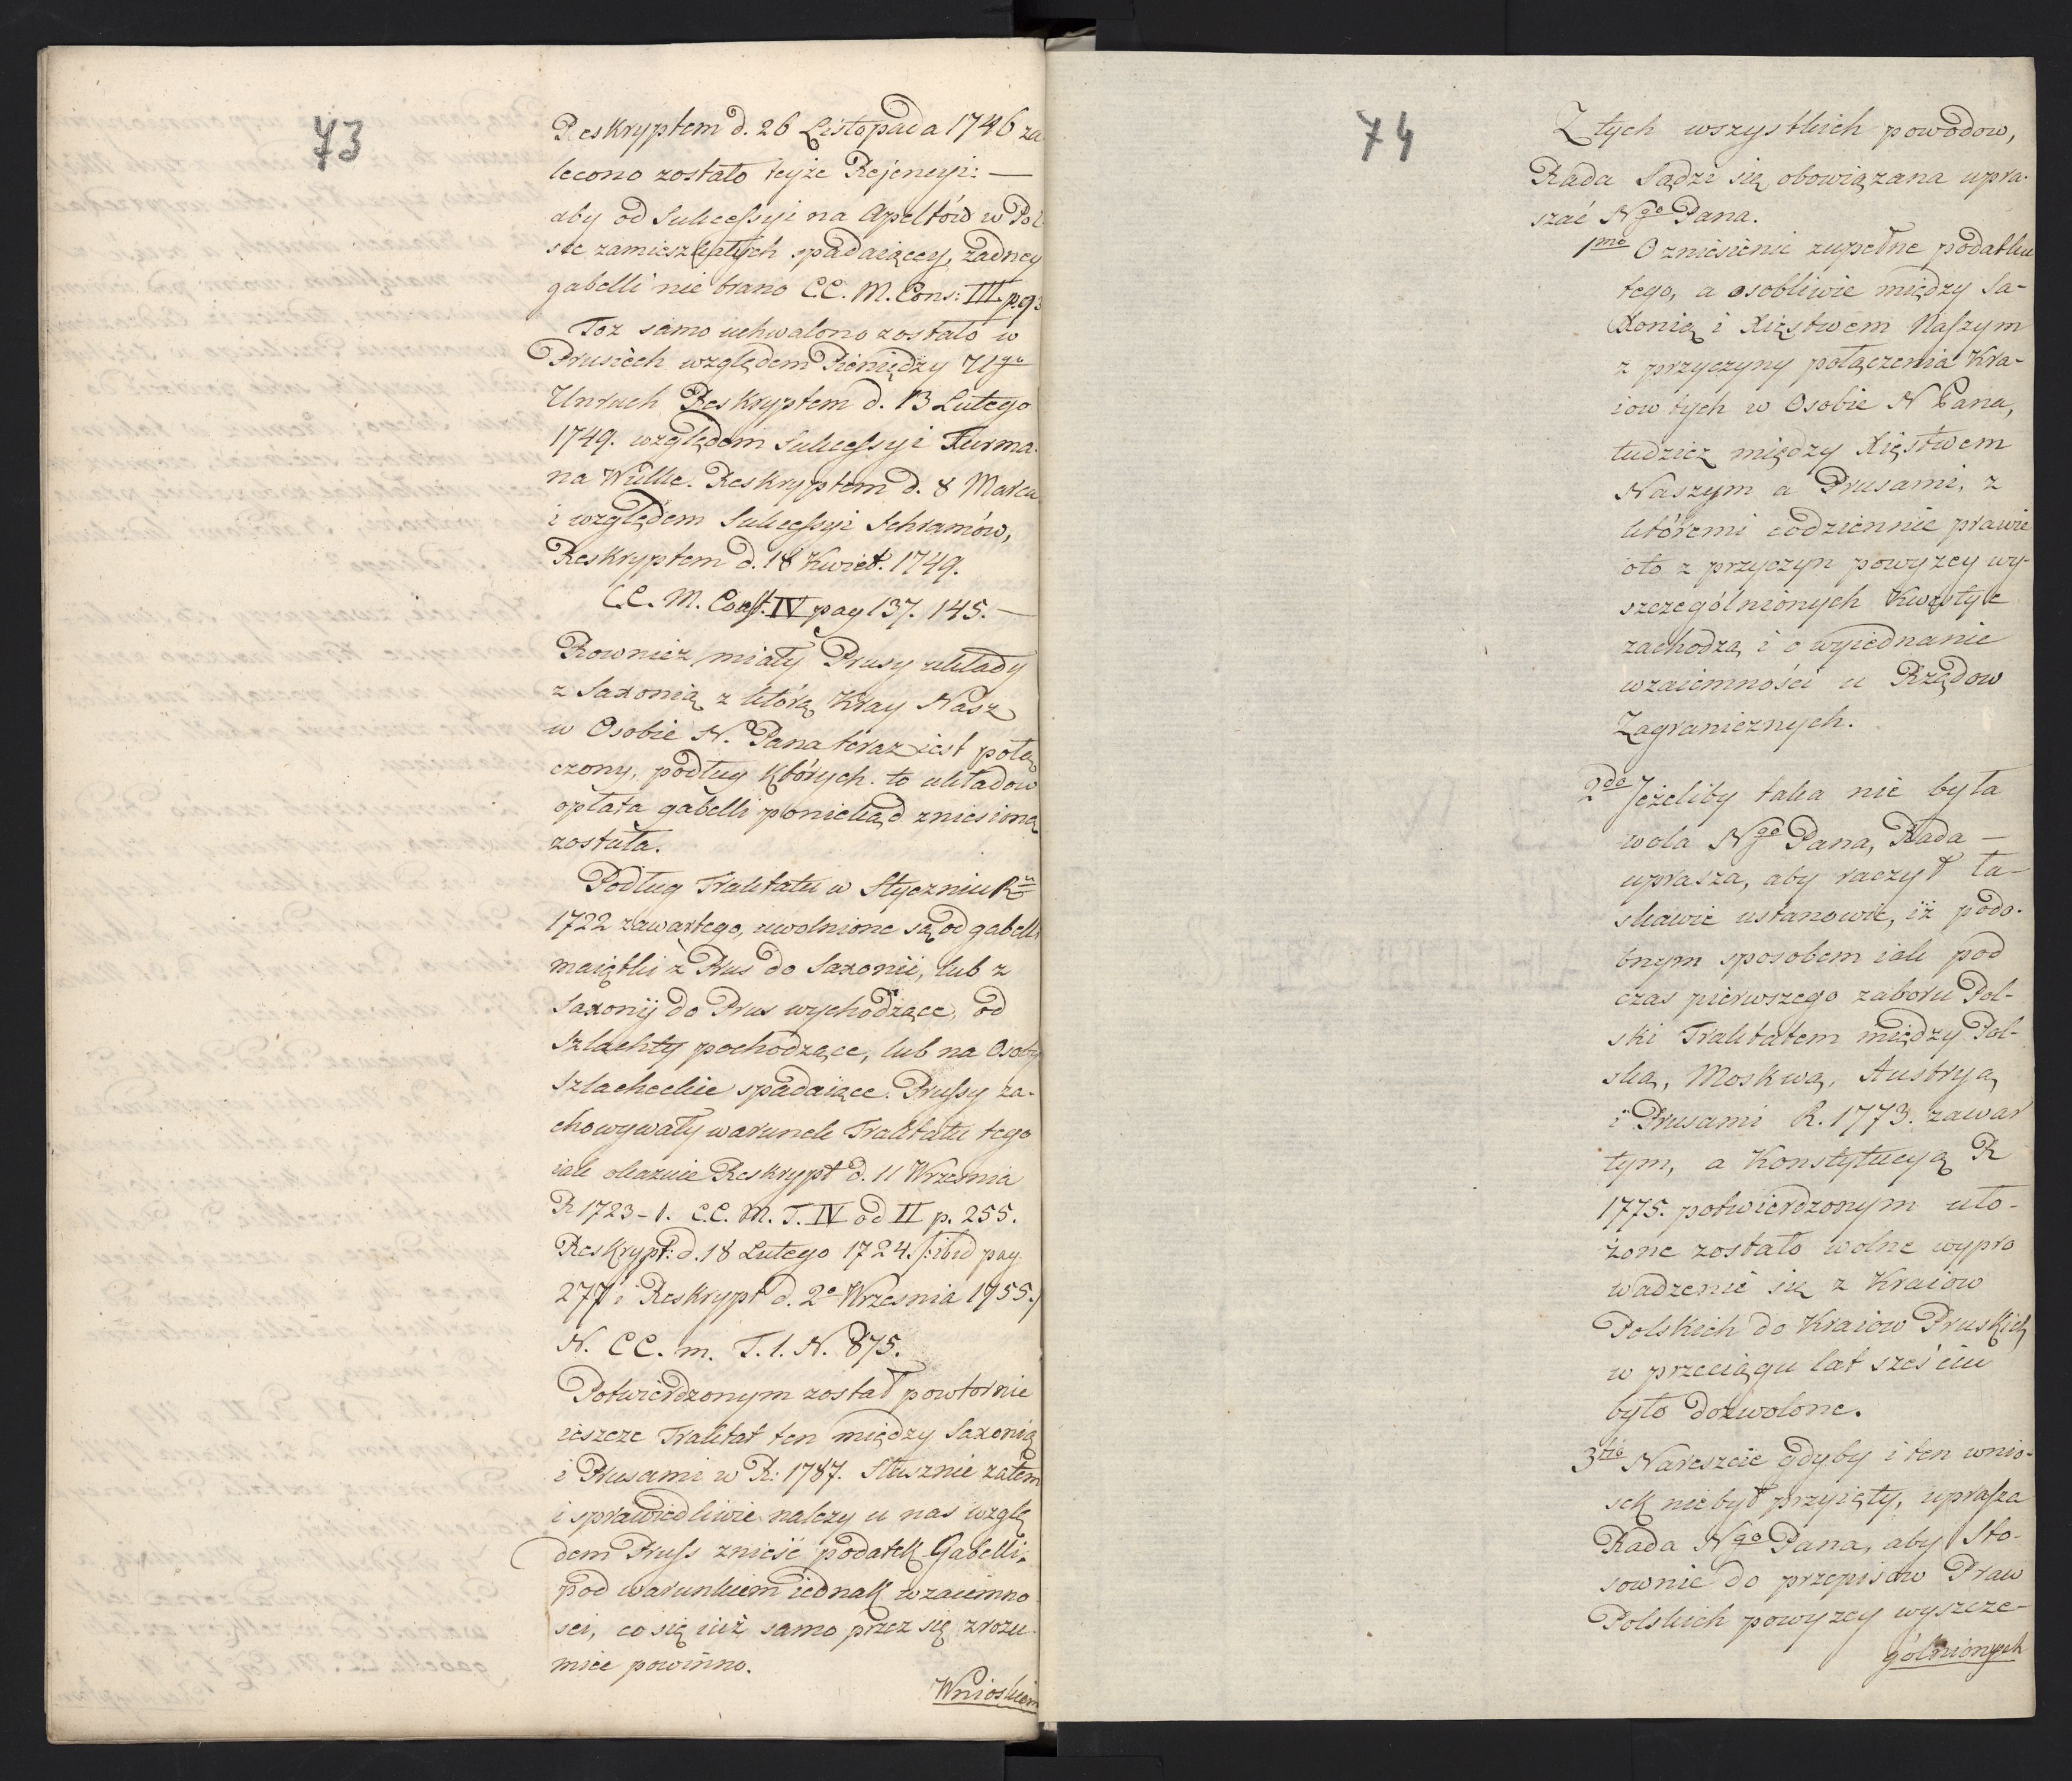 73
Reskryptem d. 26 Listopada 1746 za
lecono zostało teyże Rejencyi: —
aby od Sukcessyi na Apeltów w Pol
sce zamieszkałych spadaiącey, żadney
gabelli nie brano C.C. M. Cons: III. pg:
Toz samo uchwalono zostało w
Prusiech względem Pieniędzy Ugo
Unruch Reskryptem d. 13 Lutego
1749. względem Sukcessyi Furma-
na Wülke. Reskryptem d. 8 Marca
i względem Sukcessyi Schramów,
Reskryptem d. 18 Kwiet. 1749.
C.C. M. Const. IV pag 137. 145. —
Rownież miały Prusy układy
z Saxonią z którą Kray Nasz
w Osobie N. Pana teraz iest połą
czony, podług których to układow
opłata gabelli poniekąd zniesioną
została.
Podług Traktatu w Styczniu Ru
1722 zawartego, uwolnione są od gabelli
maiątki z Prus do Saxonii, lub z
Saxonij do Prus wychodzące, od
Szlachty pochodzące, lub na Osoby
Szlacheckie spadaiące. Prussy za-
chowywały warunek Traktatu tego
iak okazuie Reskrypt d. 11 Wrzesnia
R 1723 - 1. C.C. M. T. IV od II p. 255.
Reskrypt: d. 18 Lutego 1724. /: ibid pag
277 i Reskrypt d. 2o Wrzesnia 1755./
N. C C. m. T. 1. N. 875.
Potwierdzonym został powtornie
ieszcze Traktat ten między Saxonią
i Prusami w R: 1787. Słusznie zatem
i sprawiedliwie należy u nas wzglę
dem Pruss znieść podatek Gabelli.
pod warunkiem iednak wzaiemno
sci, co się iuż samo przez się zrozu-
mieć powinno.
Wnioskiem
74
Z tych wszystkich powodow,
Rada Sądzi się obowiązana upra-
szać Ngo Pana.
1mo O zniesienie zupełne podatku
tego, a osobliwie między Sa-
xonią i Xięstwem Naszym
z przyczyny połączenia Kra-
iow tych w Osobie N Pana,
tudzież między Xięstwem
Naszym a Prusami, z
któremi codziennie prawie
oto z przyczyn powyzey wy-
szczególnionych Kwestye
zachodzą i o wyiednanie
wzaiemności u Rządow
Zagranicznych.
2do Jeżeliby taka nie była
wola Ngo Pana, Rada —
uprasza, aby raczył ła-
skawie ustanowić, iż podo-
bnym sposobem iak pod
czas pierwszego zaboru Pol-
ski Traktatem między Pol-
ską, Moskwą, Austryą
i Prusami R. 1773. zawar
tym, a Konstytucyą R
1775. potwierdzonym uło-
żone zostało wolne wypro
wadzenie się z Kraiow
Polskich do Kraiow Pruskich
w przeciągu lat sześciu
było dozwolone.
3tio Nareszcie gdyby i ten wnio-
sek niebył przyięty, uprasza
Rada Ngo Pana, aby Sto-
sownie do przepisow Praw
Polskich powyzey wyszcze-
gólnionych